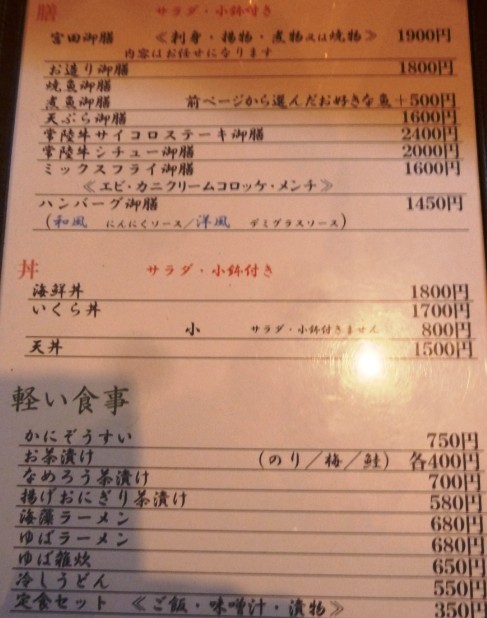 膳 サラダ・小鉢付き
宮田御膳 《刺身・揚物・煮物又は焼物》 1900円
内容はお任せになります
お造り御膳 1800円
焼魚御膳
煮魚御膳 前ページから選んだお好きな魚+500円
天ぷら御膳 1600円
常陸牛サイコロステーキ御膳 2400円
常陸牛シチュー御膳 2000円
ミックスフライ御膳 1600円
《エビ・カニクリームコロッケ・メンチ》
ハンバーグ御膳 1450円
(和風 にんにくソース/洋風 デミグラスソース)
丼 サラダ・小鉢付き
海鮮丼 1800円
いくら丼 1700円
小 サラダ・小鉢付きません 800円
天丼 1500円
軽い食事
かにぞうすい 750円
お茶漬け (のり/梅/鮭) 各400円
なめろう茶漬け 700円
揚げおにぎり茶漬け 580円
海藻ラーメン 680円
ゆばラーメン 680円
ゆば雑炊 650円
冷しうどん 550円
定食セット 《ご飯・味噌汁・漬物》 350円